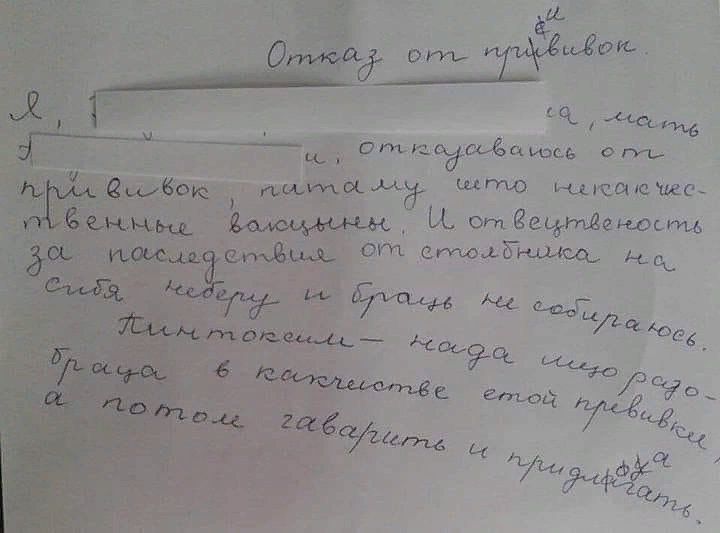 Отказ от прививок.
Я, а, мать
и, отказаваюсь от
прививок, патаму што некакчес-
твенные вакцыны. И отвецтвеность
за паследствия от столбняка на
сибя неберу и браць не собираюсь.
Пинтоксим – нада ищо разо-
браца в какчистве етой превивки,
а потом гаварить и придлагать.